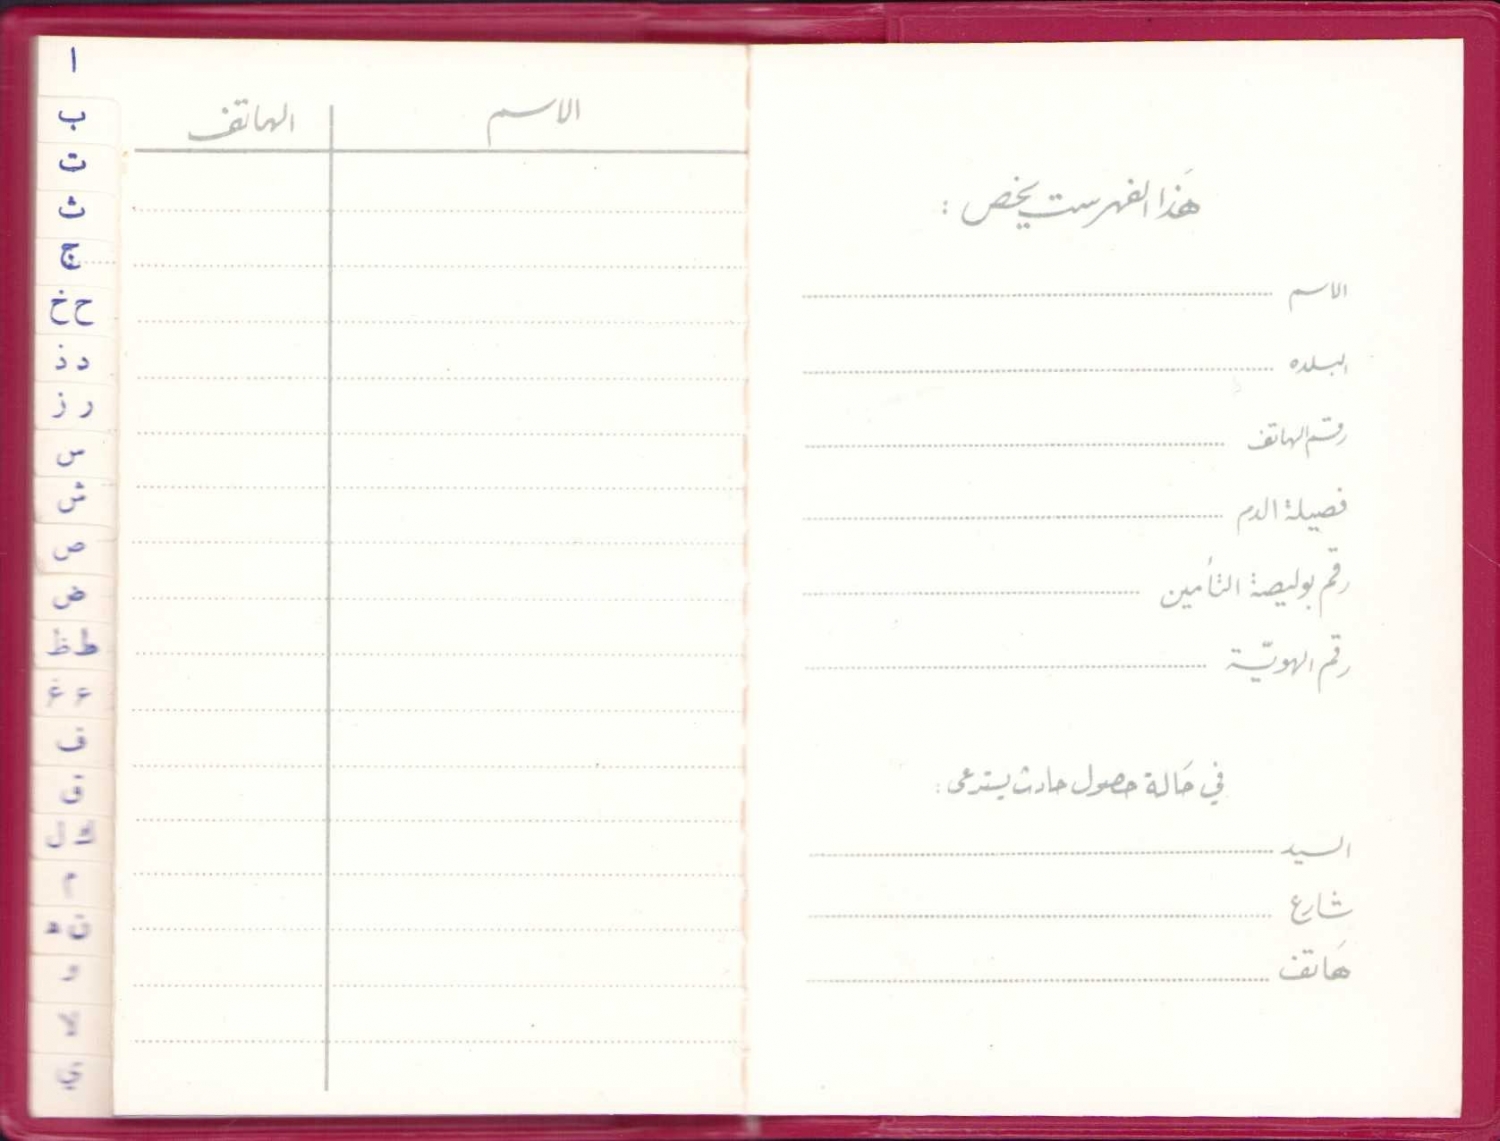 هَذا الفهرست يخص :
الاسم
البلده
رقم الهاتف
فصيلة الدم
رقم بوليصة التأمين
رقم الهويّة
في حَالة حصول حادث يستدعى :
السيد
شارع
هَاتف
الاسم الهاتف
ا
ب
ت
ث
ج
ح خ
د ذ
ر ز
س
ش
ص
ض
ط ظ
ع غ
ف
ق
ك ل
م
ن ه
و
لا
ي